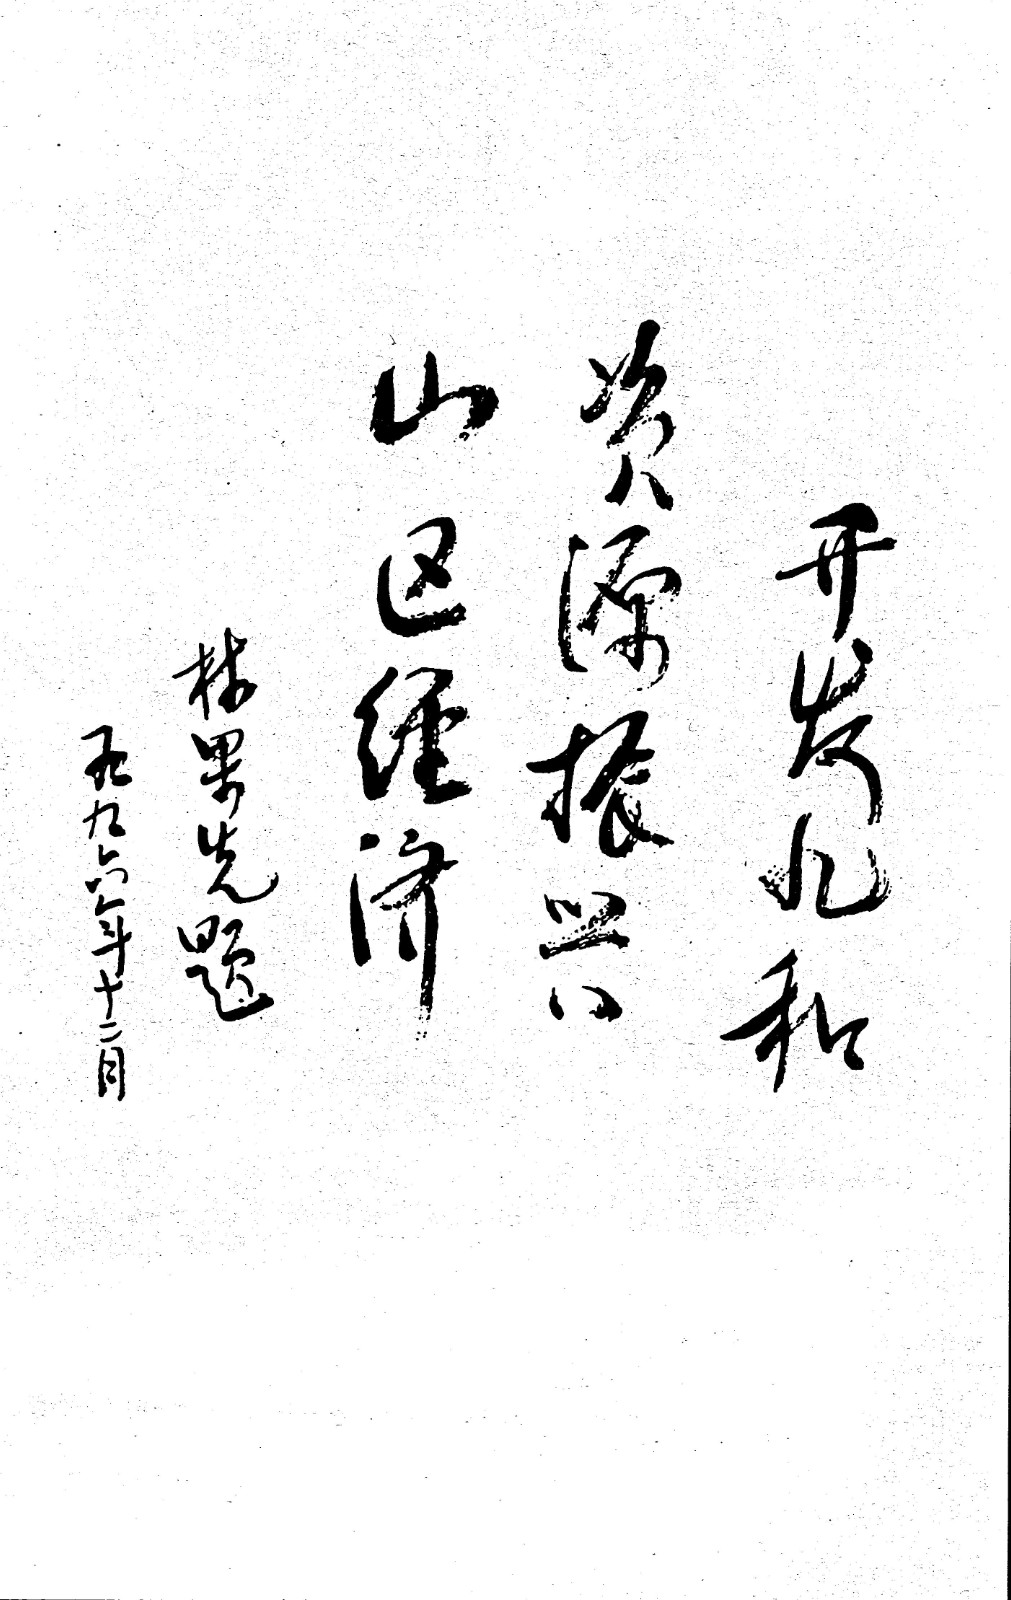 开发九和
资源振兴
山区经济
林果先题
一九九六年十二月